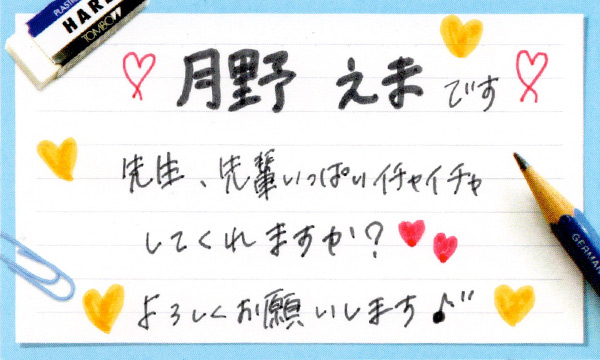 PLASTIC
HARD
TOMBOW
月野 えま です
先生、先輩いっぱいイチャイチャ
してくれますか?
よろしくお願いします♪
GERMAN